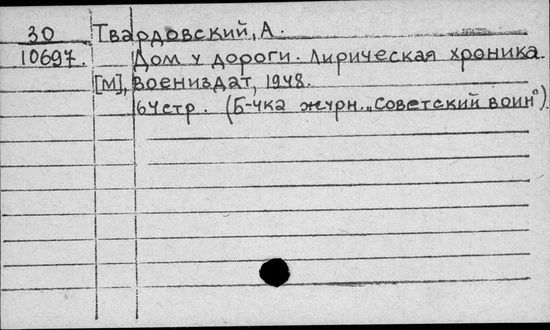 30 Твардовский, А.
10697. Дом у дороги. Лирическая хроника.
[М], Воениздат, 1948.
64стр. (Б-чка журн. „Советский воин").